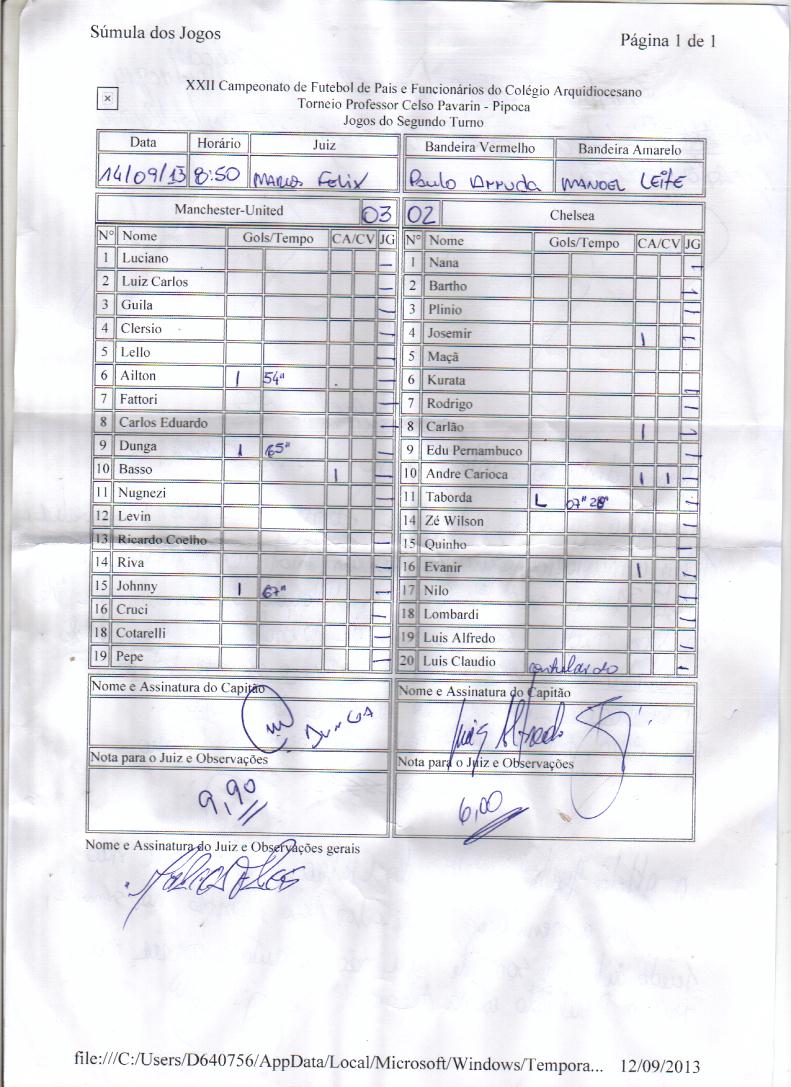 Súmula dos Jogos
Página 1 de 1
XXII Campeonato de Futebol de Pais e Funcionários do Colégio Arquidiocesano
Torneio Professor Celso Pavarin - Pipoca
Jogos do Segundo Turno
Data Horário Juiz Bandeira Vermelho Bandeira Amarelo
14/09/13 8:50 MARCOS FELIX PAULO ARRUDA MANOEL LEITE
Manchester-United 03 02 Chelsea
Nº Nome Gols/Tempo CA/CV JG Nº Nome Gols/Tempo CA/CV JG
1 Luciano — 1 Nana —
2 Luiz Carlos — 2 Bartho —
3 Guila — 3 Plinio —
4 Clersio — 4 Josemir 1 —
5 Lello — 5 Maçã
6 Ailton 1 54" — 6 Kurata —
7 Fattori — 7 Rodrigo —
8 Carlos Eduardo — 8 Carlão 1 —
9 Dunga 1 65" — 9 Edu Pernambuco —
10 Basso 1 — 10 Andre Carioca 1 1 —
11 Nugnezi — 11 Taborda L 07" 28" —
12 Levin 14 Zé Wilson —
13 Ricardo Coelho — 15 Quinho —
14 Riva — 16 Evanir 1 —
15 Johnny 1 67" — 17 Nilo —
16 Cruci — 18 Lombardi —
18 Cotarelli — 19 Luis Alfredo —
19 Pepe — 20 Luis Claudio —
Nome e Assinatura do Capitão Nome e Assinatura do Capitão
DUNGA Luis Alfredo
Nota para o Juiz e Observações Nota para o Juiz e Observações
9,90 6,00
Nome e Assinatura do Juiz e Observações gerais
file:///C:/Users/D640756/AppData/Local/Microsoft/Windows/Tempora... 12/09/2013